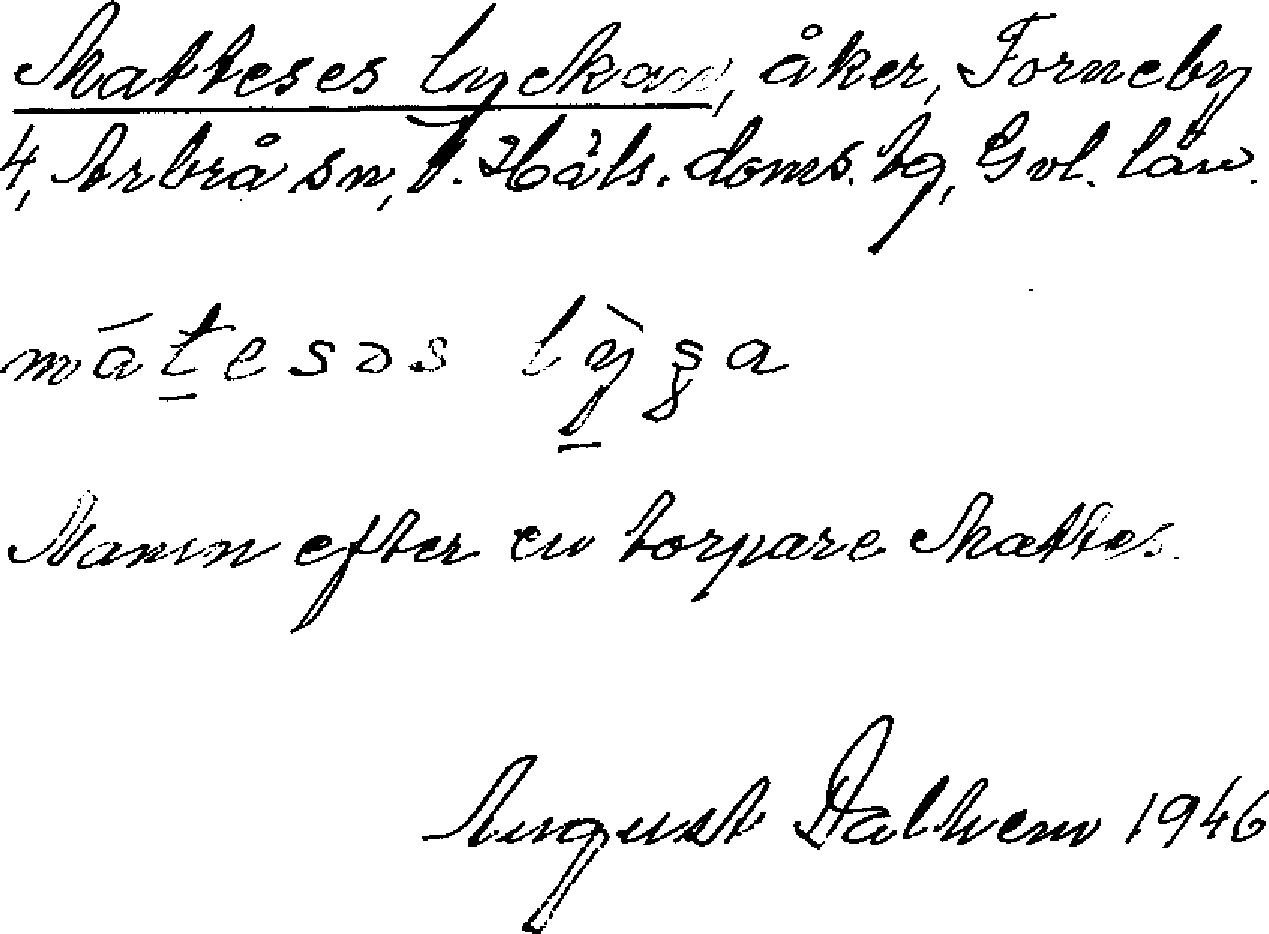 Matteses lyckan, åker, Forneby
4, Arbrå sn, V. Häls. doms. tg, Gvl. län.
mátesəs lỳşa
Namn efter en torpare Mattes.
August Dalhem 1946